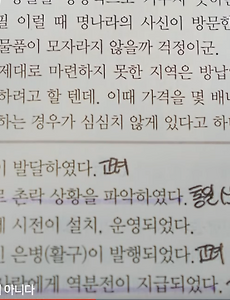 필 이럴 때 명나라의 사신이 방문한
물품이 모자라지 않을까 걱정이군.
제대로 마련하지 못한 지역은 방납
하려고 할 텐데. 이때 가격을 몇 배나
하는 경우가 심심치 않게 있다고 하
이 발달하였다. 고려
로 촌락 상황을 파악하였다.
에 시전이 설치, 운영되었다.
인 은병(활구)이 발행되었다. 고려
에게 역분전이 지급되었다.
아니다